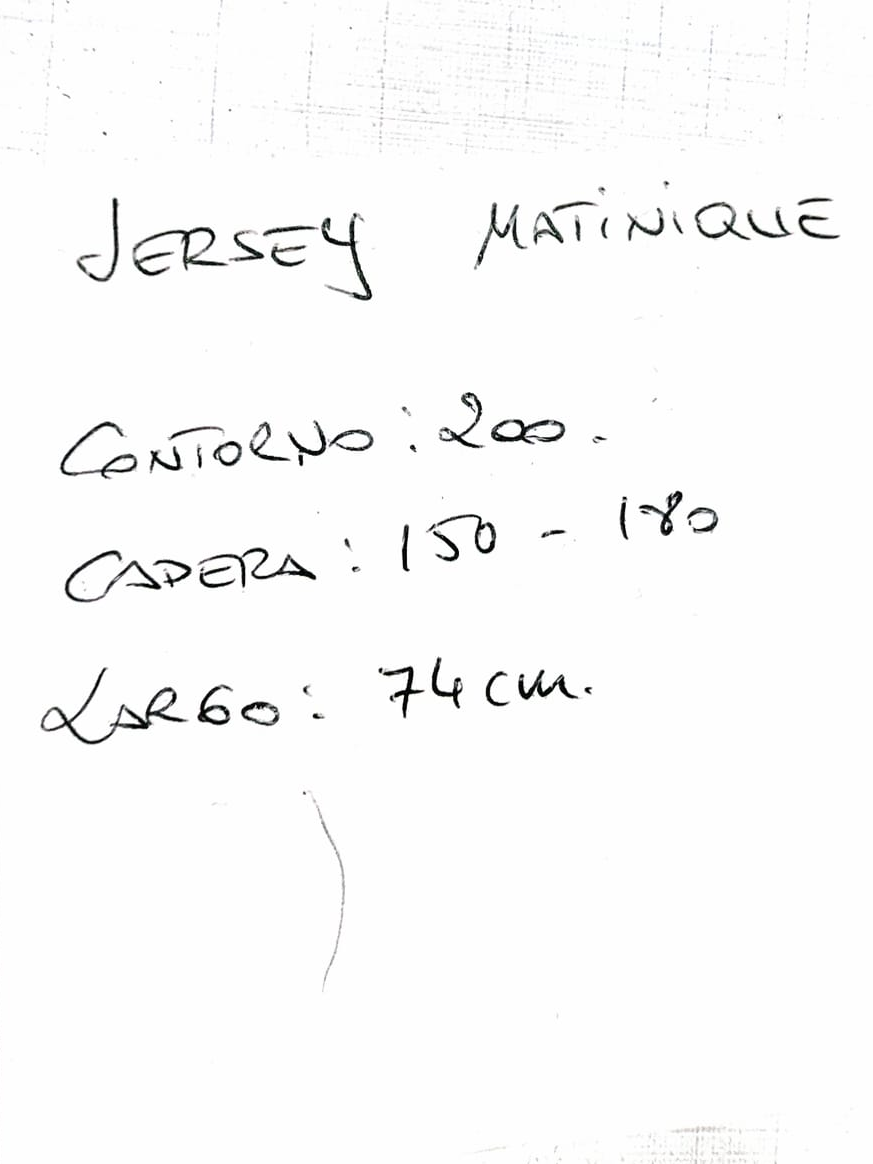 JERSEY MATINIQUE
CONTORNO: 200.
CADERA: 150 - 180
LARGO: 74 cm.